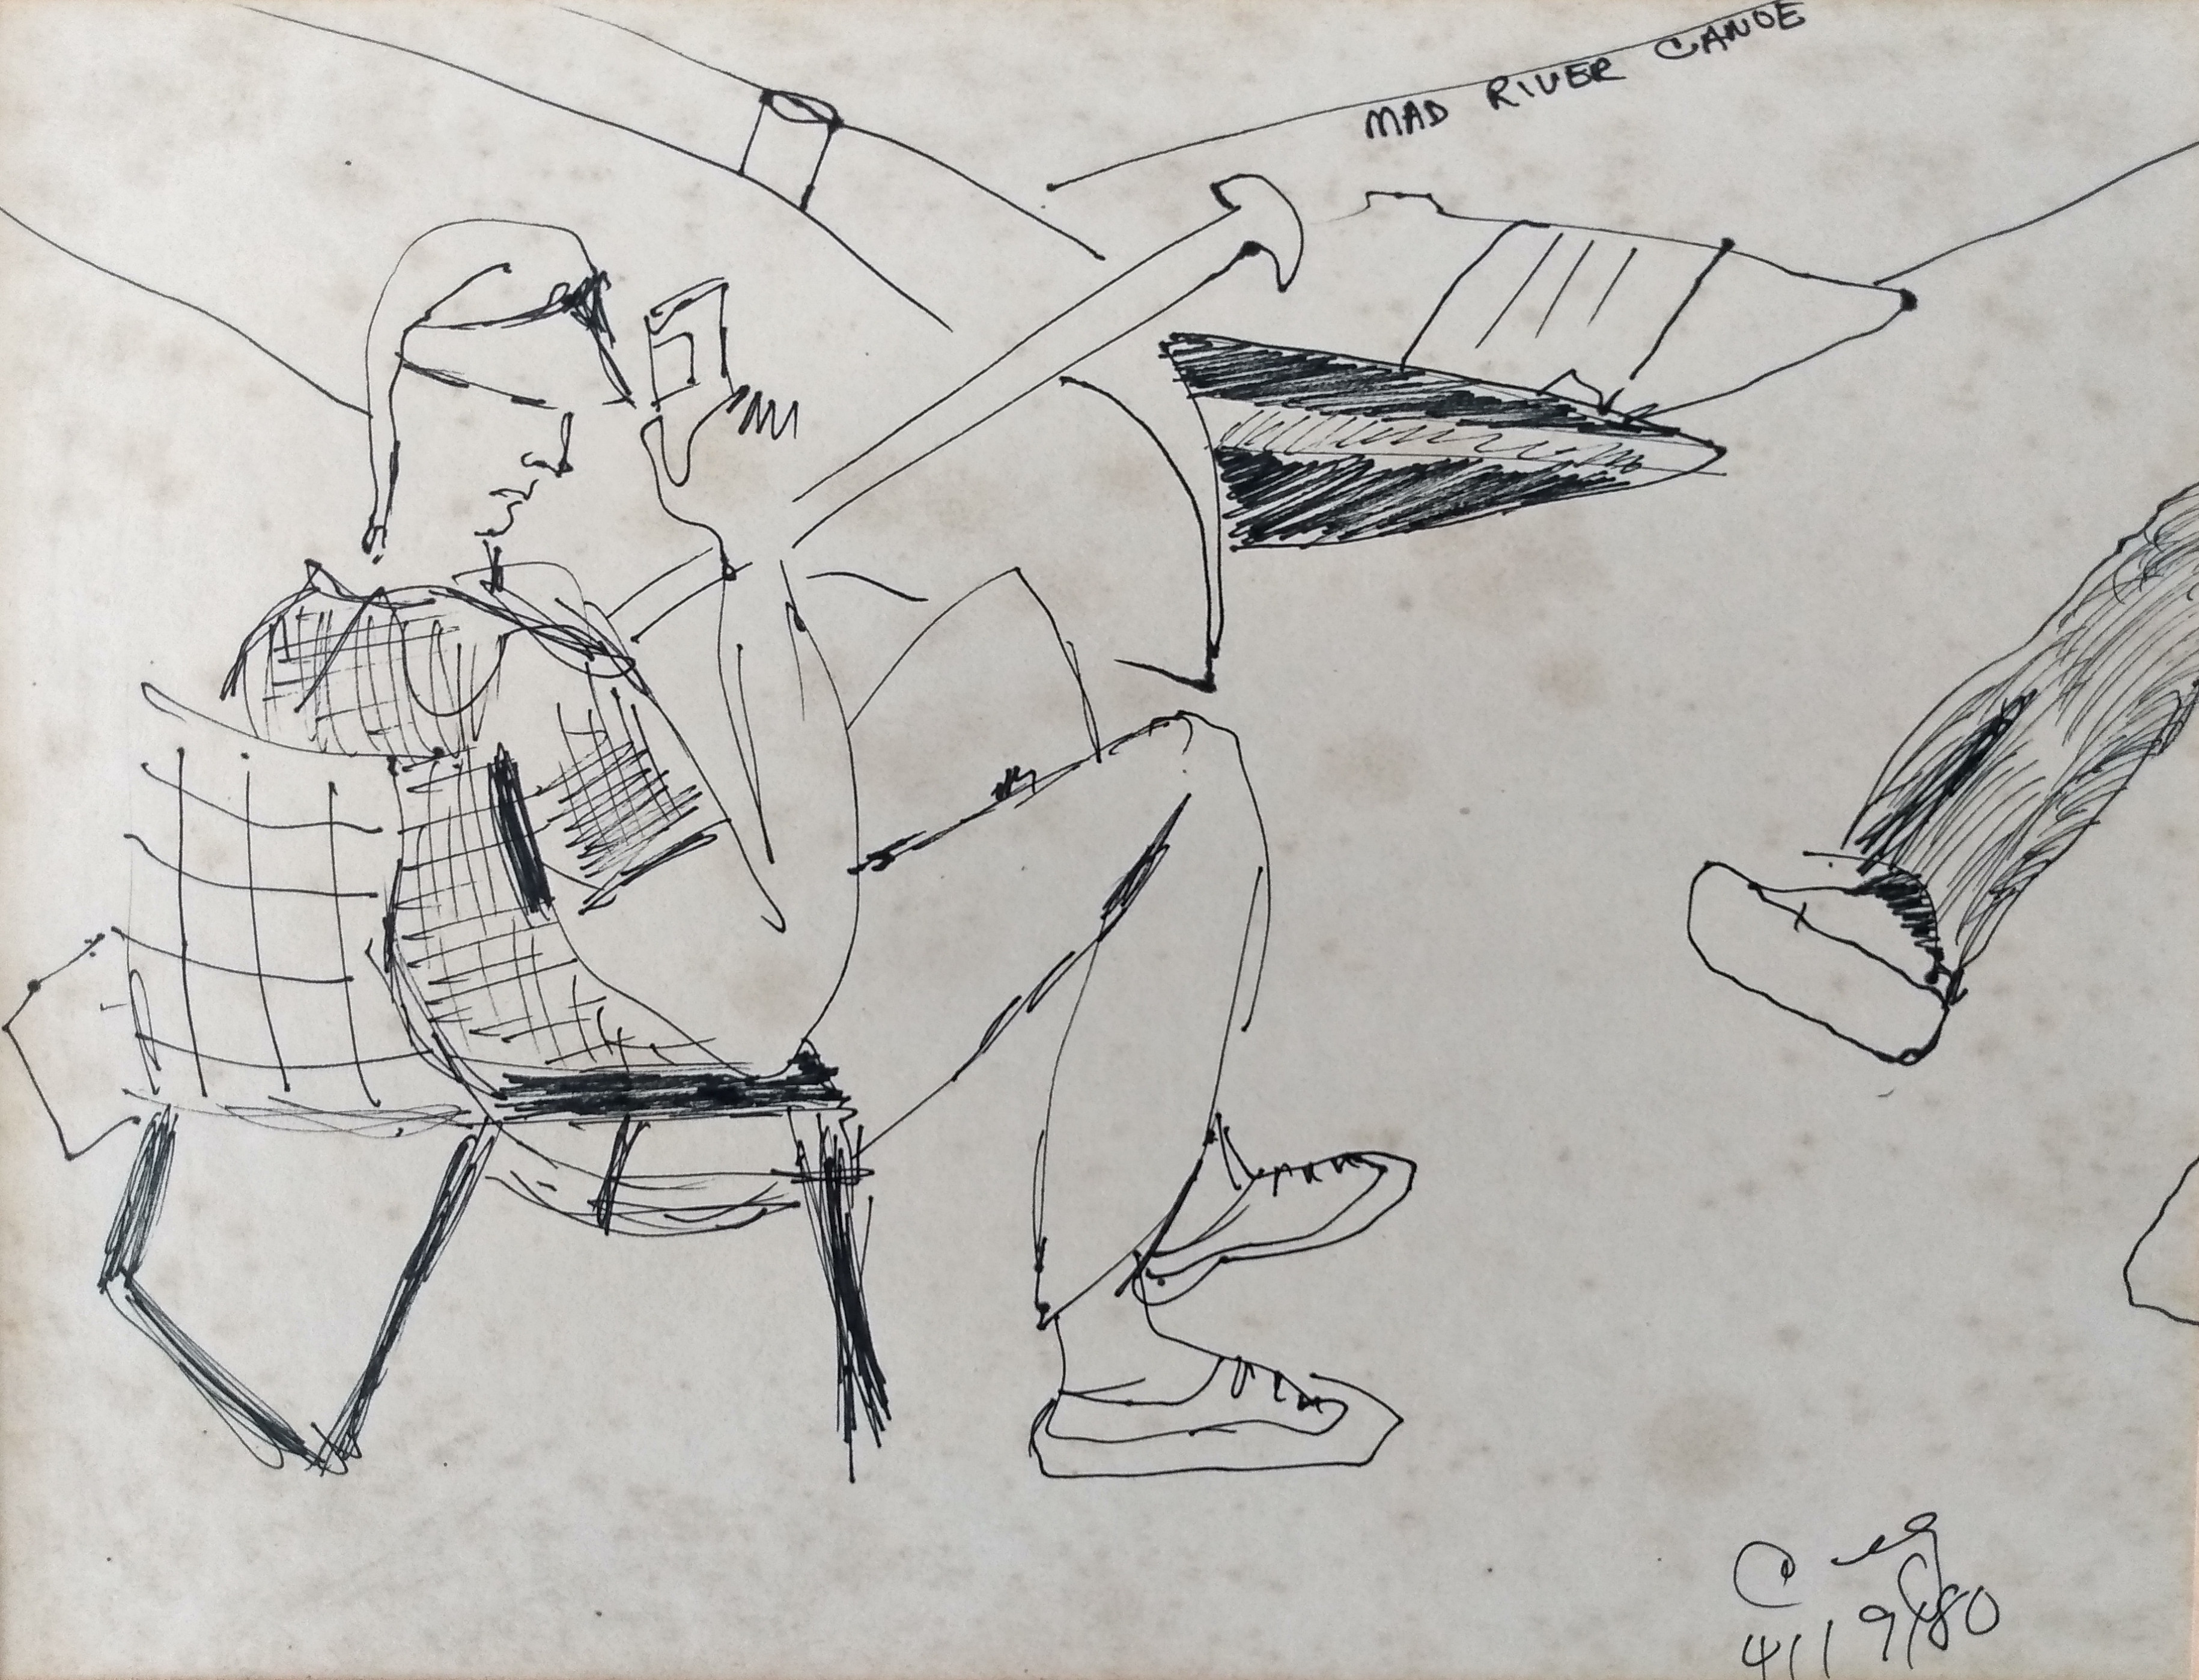 MAD RIVER CANOE
4/19/80